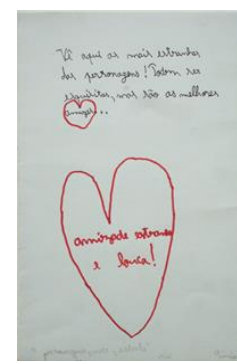 Vê aqui as mais estranhas
das personagens! Podem ser
esquisitas, mas são as melhores
amigas...
amizade estranha
e louca!